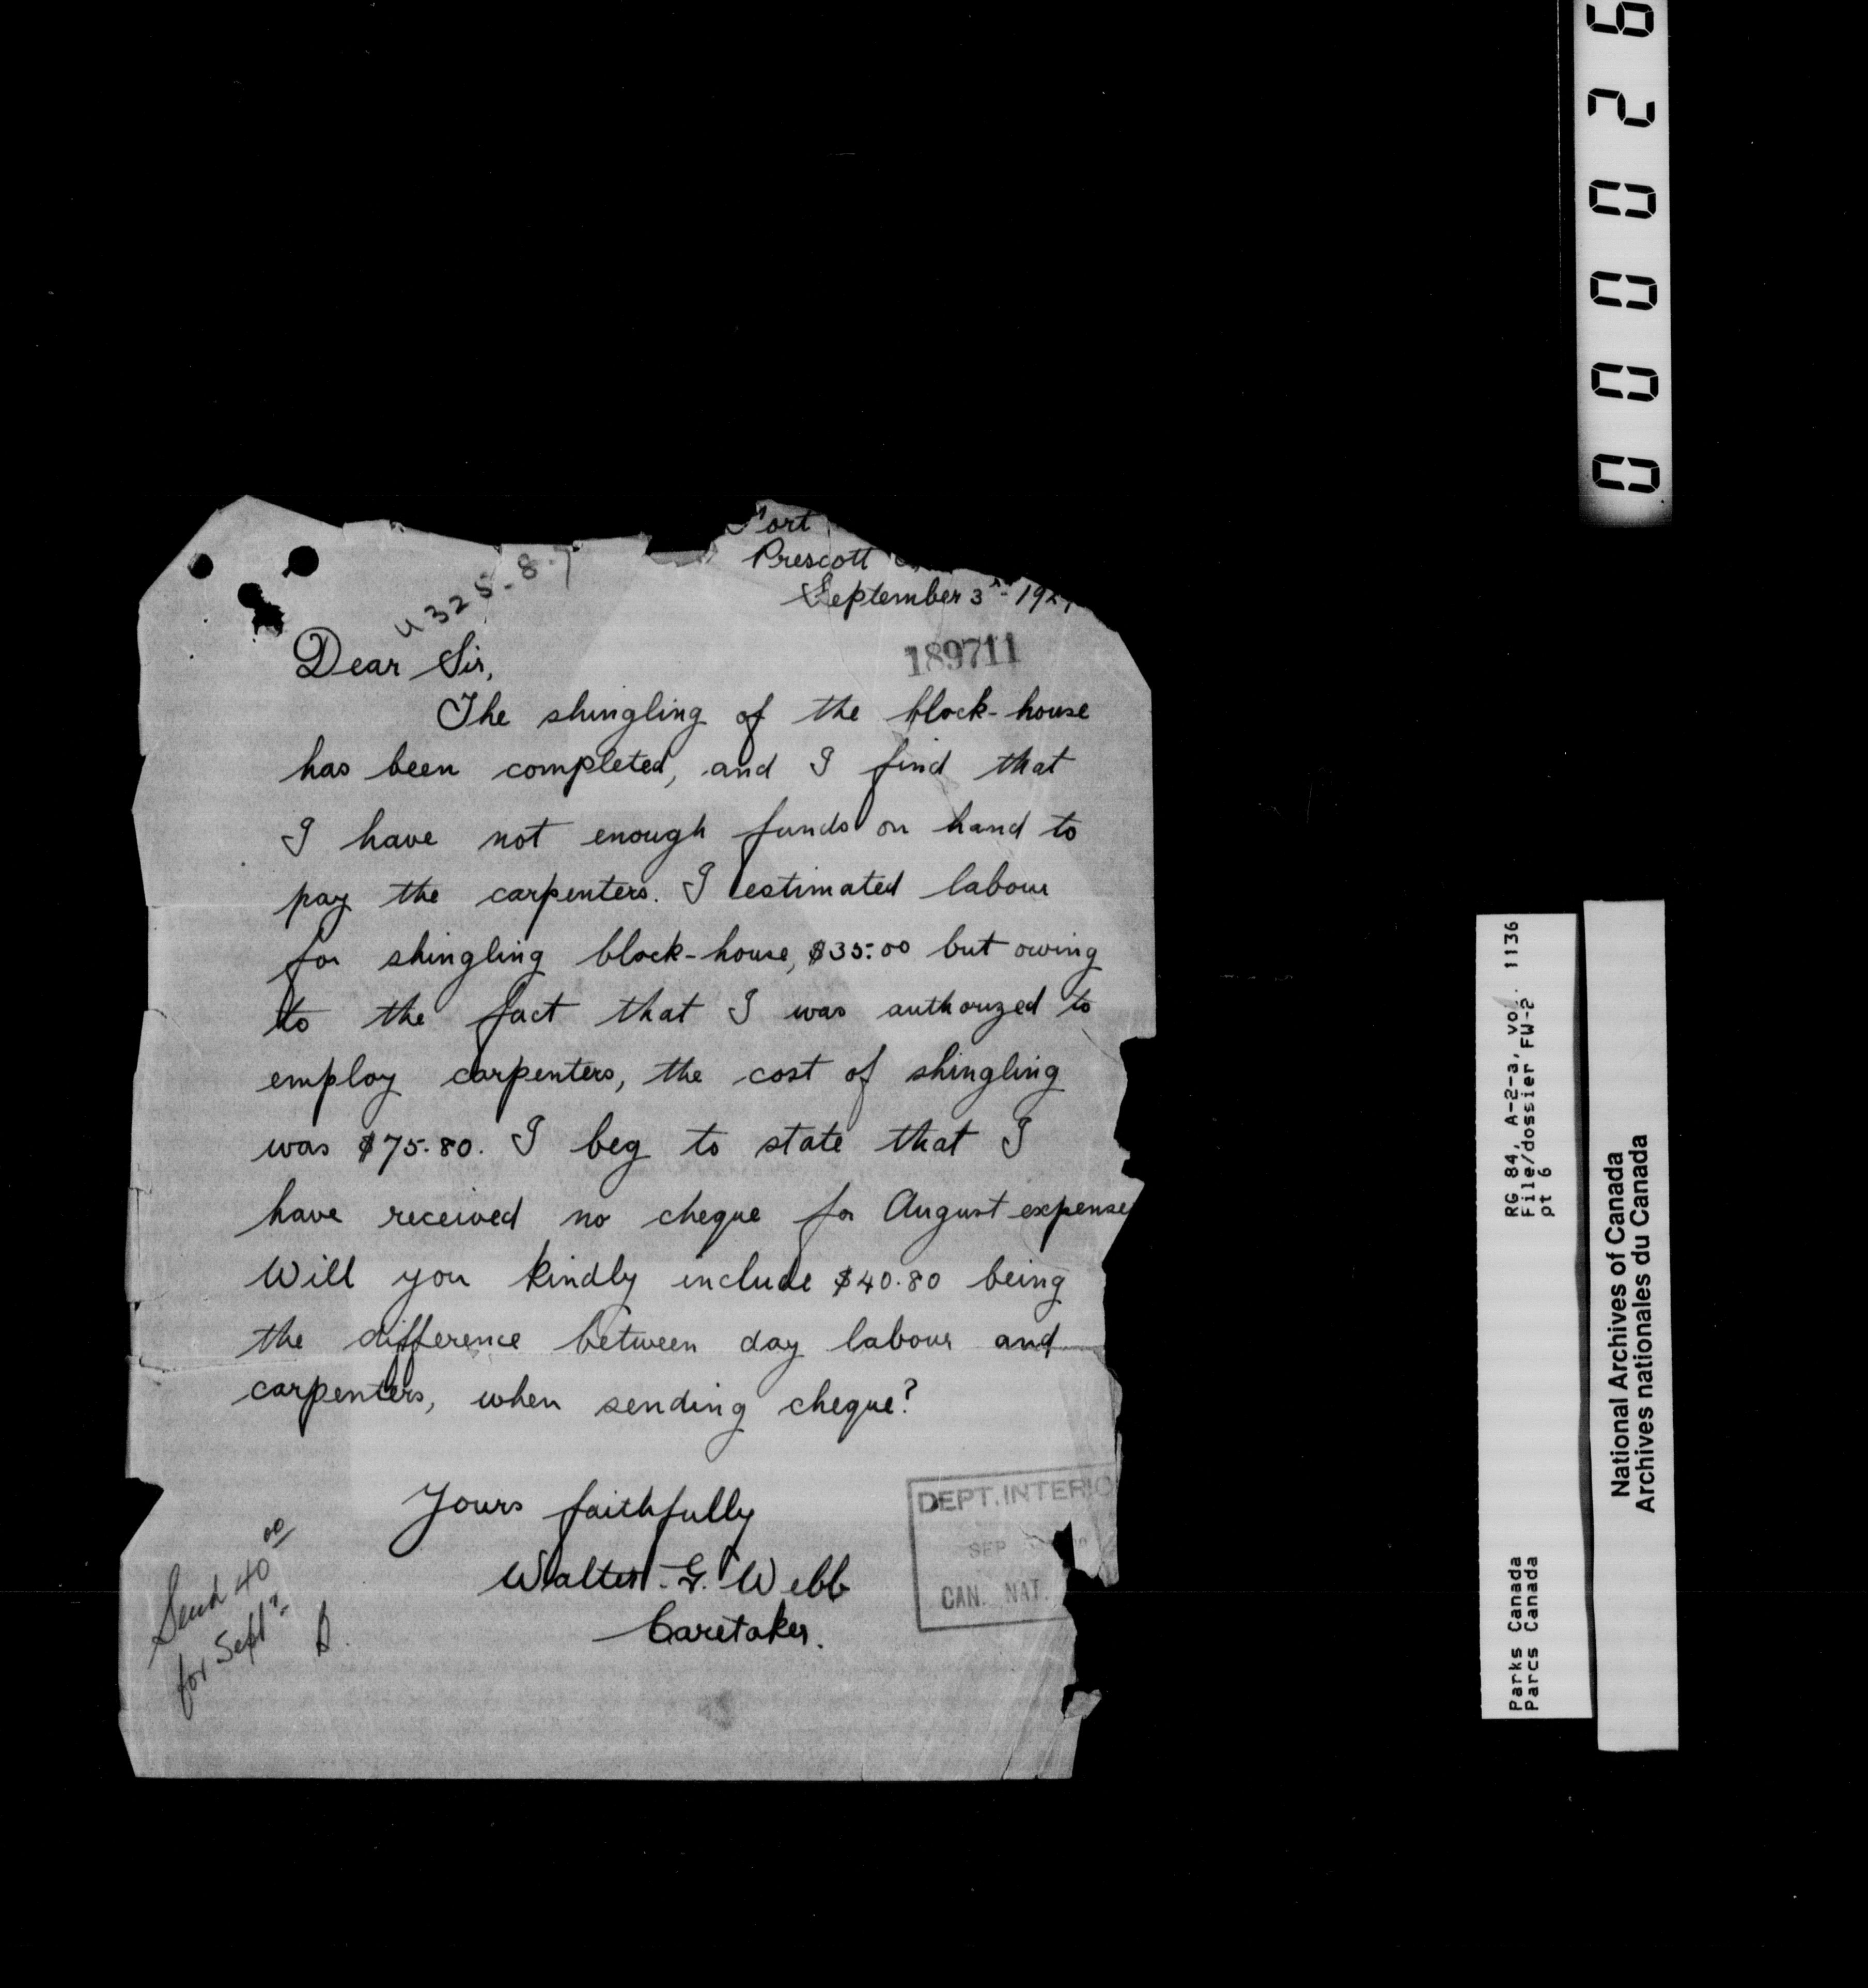 Fort
Prescott
September 3rd 192
U325-8-7
189711
Dear Sir,
The shingling of the block-house
has been completed, and I find that
I have not enough funds on hand to
pay the carpenters. I estimated labour
for shingling block-house, $35.00 but owing
to the fact that I was authorized to
employ carpenters, the cost of shingling
was $75.80. I beg to state that I
have received no cheque for August expense
Will you kindly include $40.80 being
the difference between day labour and
carpenters, when sending cheque?
Yours faithfully
Walter. G. Webb
Caretaker.
DEPT. INTERIO
SEP
CAN. NAT.
Send 40 00
for Sept
000026
RG 84, A-2-a, vol. 1136
File/dossier FW-2
pt 6
Parks Canada
Parcs Canada
National Archives of Canada
Archives nationales du Canada